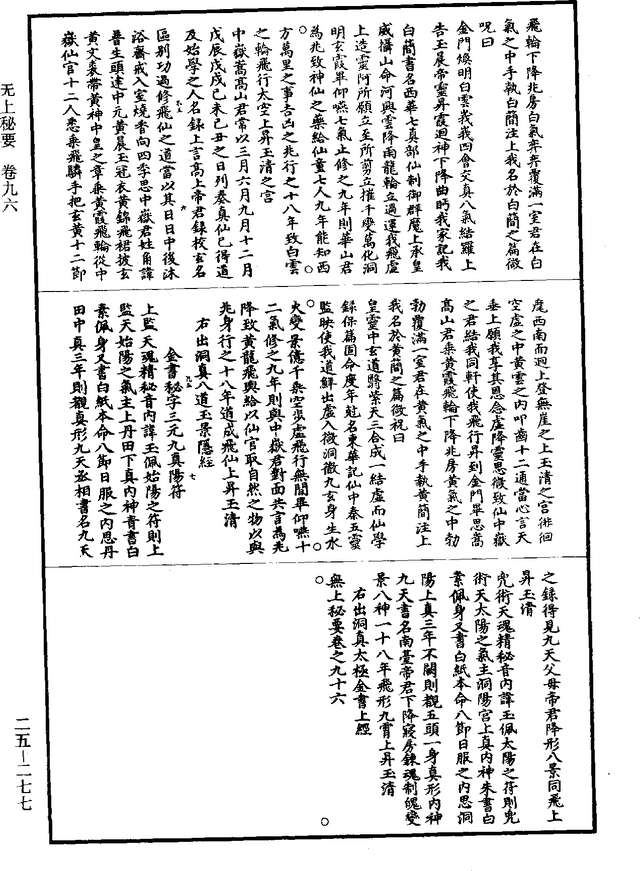 飛輪下降兆房白氣弈弈覆滿一室君在白
氣之中手執白簡注上我名於白簡之篇微
呪曰
金門煥明白雲我我四會交真八氣結羅上
告玉晨帝靈昇霞迴神下降曲眄我家記我
白簡書名西華七真部仙制御群魔上承皇
威攝山命河興雲降雨龍輪立過運我飛虛
上造靈阿所願立至所剪立摧千變萬化洞
明玄霞畢仰嚥七氣止修之九年則華山君
為兆致神仙之藥給仙童七人九年能知西
方萬里之事吉凶之兆行之十八年致白雲
之輪飛行太空上昇玉清之宮
中嶽嵩高山君常以三月六月九月十二月
戊辰戊戌己未己丑之日列奏真仙已得道
及始學之人名錄上言高上帝君錄校玄名
區別功過修飛仙之道當以其日日中後沐
浴齋戒入室燒香向四季思中嶽君姓角諱
普生頭達中元黃晨玉冠衣黃錦飛裙披玄
黃文裘帶黃神中皇之章乘黃霞飛輪從中
嶽仙官十二人悉乘飛驎手把玄黃十二節
麾西南而迴上登無崖之上玉清之宮徘徊
空虛之中黃雲之內叩齒十二通當心言天
垂上願我享其思念虛降靈思微致仙中嶽
之君給我同軒使我飛行昇到金門畢思嵩
高山君乘黃霞飛輪下降兆房黃氣之中勃
勃覆滿一室君在黃氣之中手執黃簡注上
我名於黃簡之篇微祝曰
皇靈中玄道縛紫天三合成一結虛而仙學
錄保篇固命度年冠名東華記仙中秦五靈
監映使我道鮮出虛入微洞徹九玄身生水
火變景億千乘空步虛飛行無閒畢仰嚥十
二氣修之九年則與中嶽君對面共言為兆
降致黃龍飛輿給以仙官取自然之物以與
兆身行之十八年道成飛仙上昇玉清
右出洞真八道玉景隱經
金書秘字三元九真陽符
上監天魂精秘音內諱玉佩始陽之符則上
監天始陽之氣主上丹田下真內神青書白
素佩身又書白紙本命八節日服之內思丹
田中真三年則觀真形九天丞相書名九天
之錄得見九天父母帝君降形八景同飛上
昇玉清
兜術天魂精秘音內諱玉佩太陽之符則兜
術天太陽之氣主洞陽宮上真內神朱書白
素佩身又書白紙本命八節日服之內思洞
陽上真三年不闕則觀五頭一身真形內神
九天書名南臺帝君下降寢房錬魂制魄變
景八神一十八年飛形九霄上昇玉清
右出洞真太極金書上經
無上秘要卷之九十六
无上秘要 卷九六
二五—二七七